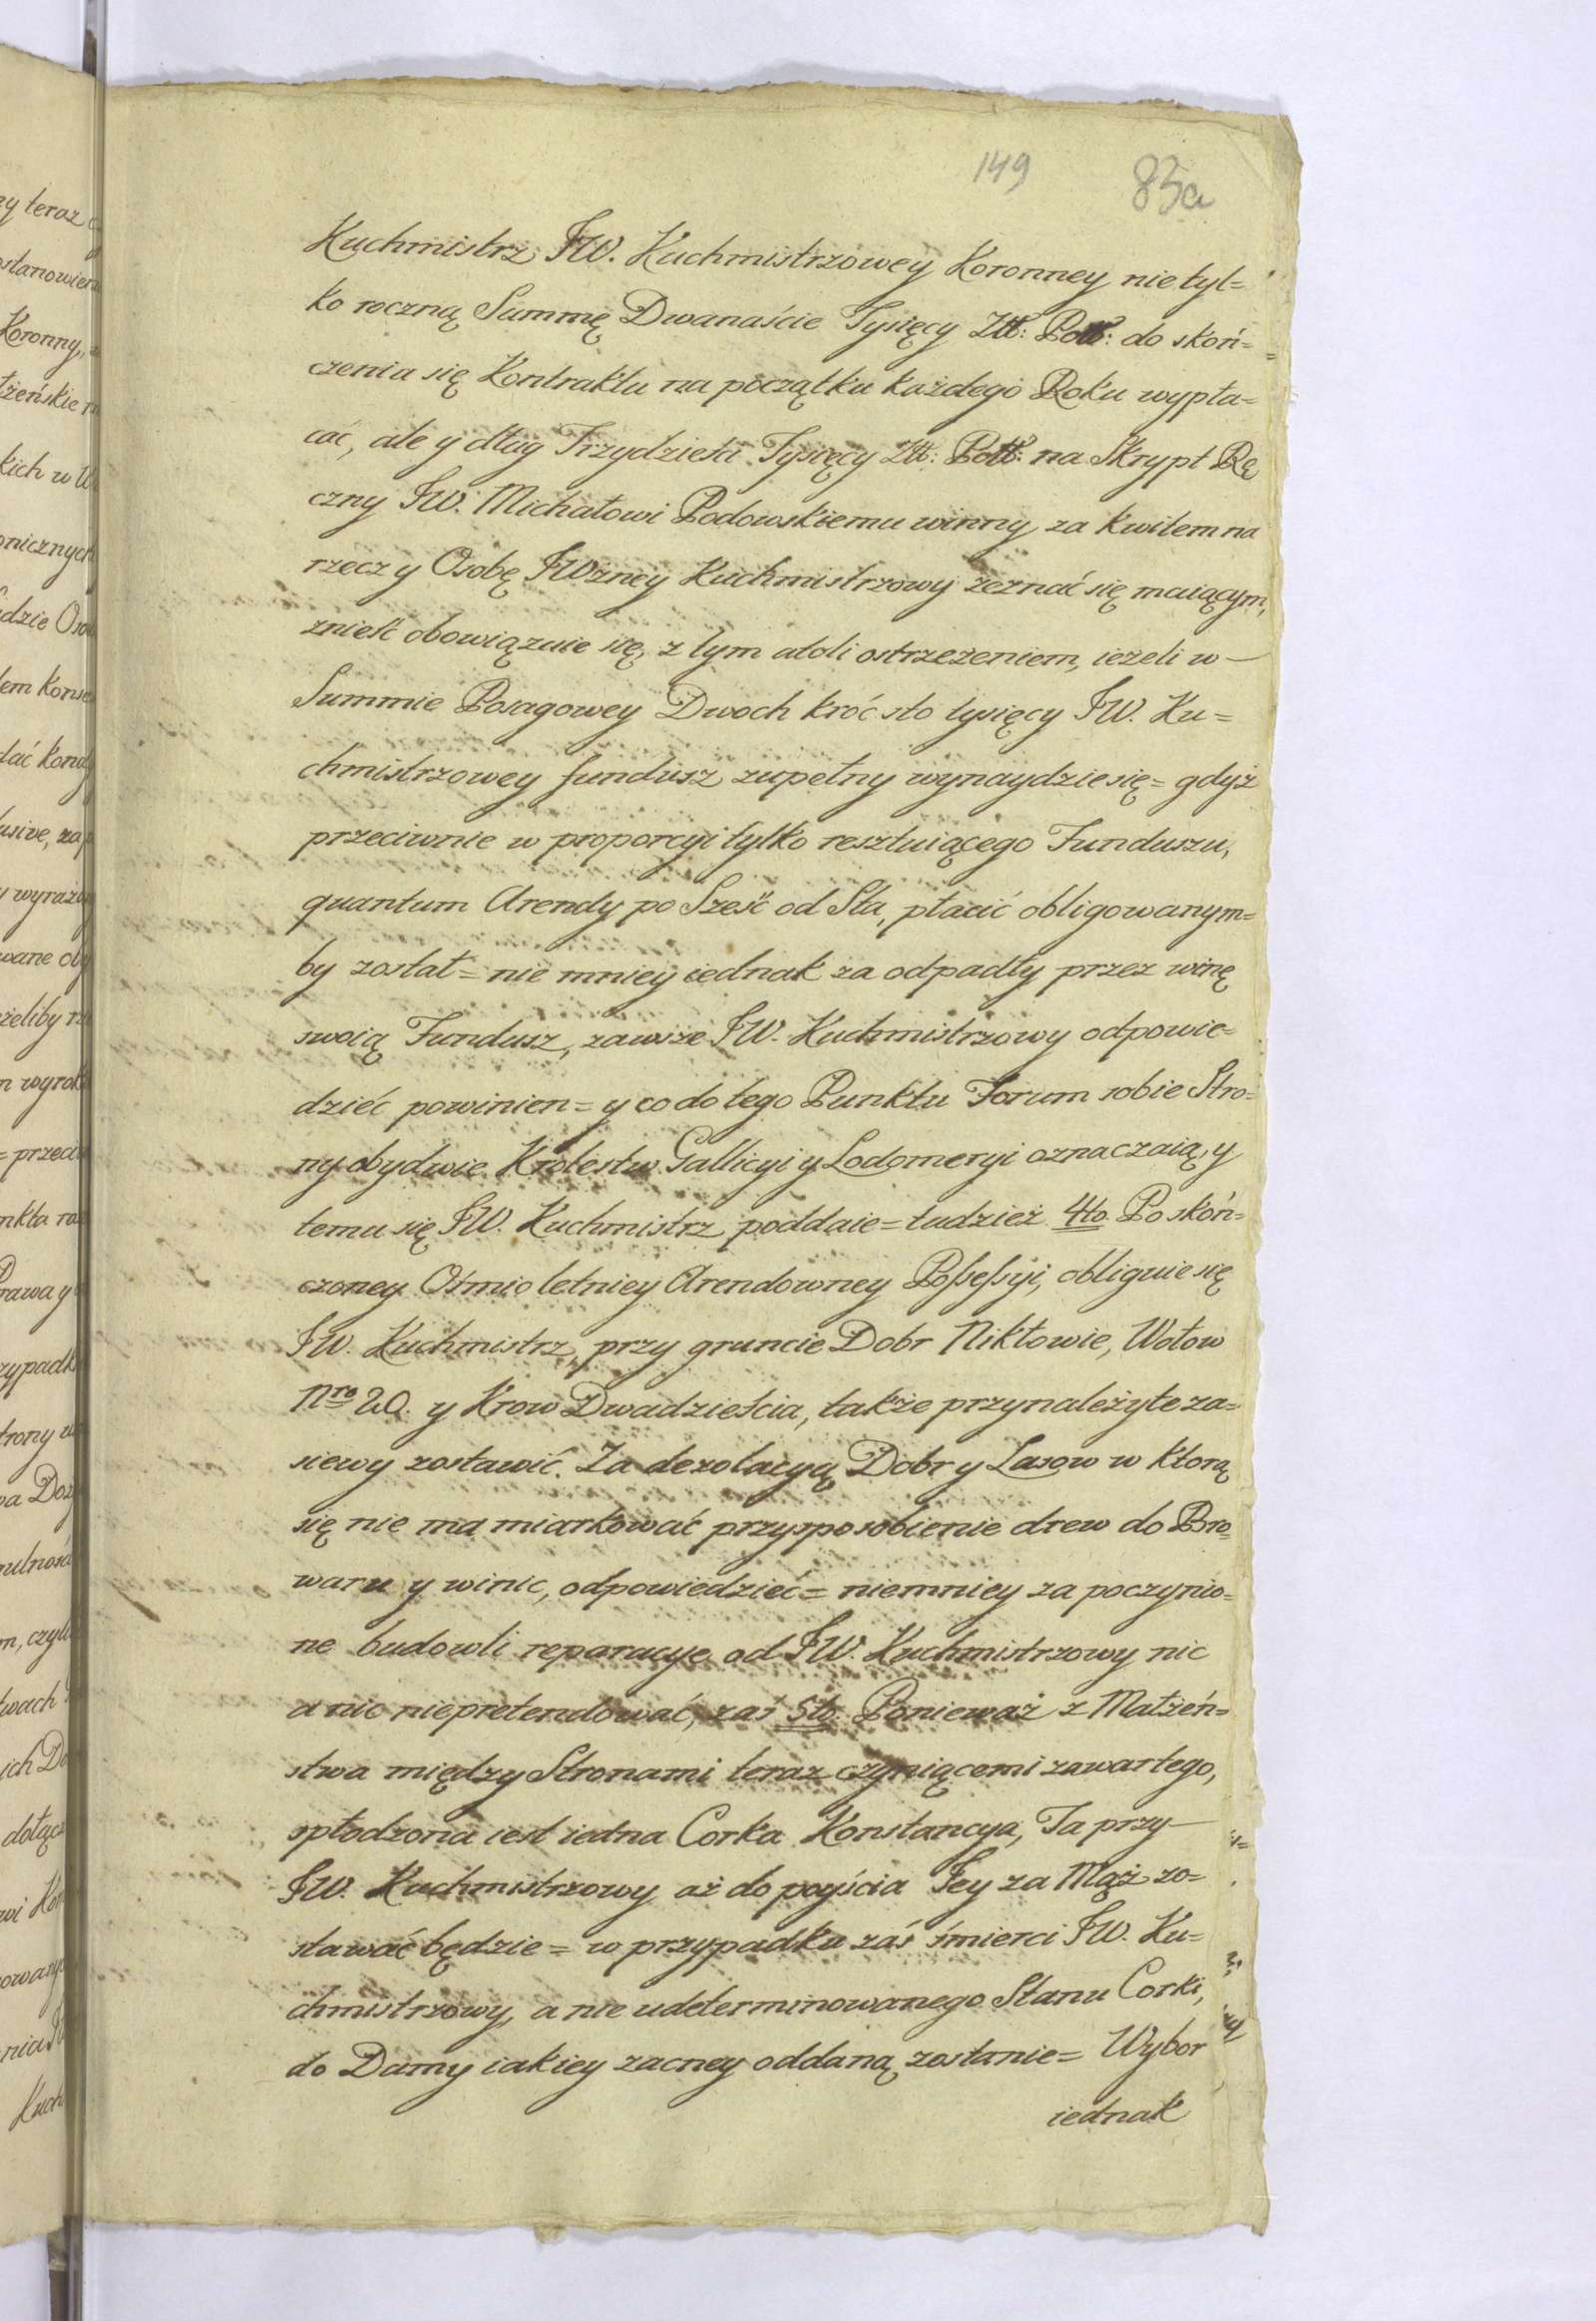 149 83a
Kuchmistrz JW. Kuchmistrzowey Koronney nie tyl=
ko roczną Summę Dwanaście Tysięcy Złł: Poll: do skoń=
czenia się Kontraktu na początku każdego Roku wypła=
cać, ale y dług Trzydzieści Tysięcy Złł: Poll: na Skrypt Rę
czny JW. Michałowi Podowskiemu winny, za kwitem na
rzecz y Osobę JWżney Kuchmistrzowy zeznać się maiącym,
znieść obowiązuie się, z tym atoli ostrzeżeniem, ieżeli w
Summie Posagowey Dwoch kroć sto tysięcy JW. Ku=
chmistrzowey fundusz zupełny wynaydzie się= gdyż
przeciwnie w proporcyi tylko resztuiącego Funduszu,
quantum Arendy po Sześć od Sta, płacić obligowanym=
by został= nie mniey iednak za odpadły przez winę
swoią Fundusz, zawsze JW. Kuchmistrzowy odpowie=
dzieć powinien= y co do tego Punktu Forum sobie Stro=
ny obydwie Krolestw Gallicyi y Lodomeryi oznaczaią, y
temu się JW. Kuchmistrz poddaie= tudzież 4to. Po skoń=
czoney Ośmio letniey Arendowney Possessyi, obliguie się
JW. Kuchmistrz, przy gruncie Dobr Nikłowie, Wołow
Nro 20. y Krow Dwadzieścia, także przynależyte za=
siewy zostawić. Za dezolacyą Dobr y Lasow w ktorą
się nie ma miarkować przysposobienie drew do Bro=
waru y winic, odpowiedzieć= niemniey za poczynio=
ne budowli reparacye od JW. Kuchmistrzowy nic
a nic niepretendować, zaś 5to. Ponieważ z Małżeń=
stwa między Stronami teraz czyniącemi zawartego,
spłodzona iest iedna Corka Konstancya, Ta przy
JW. Kuchmistrzowy aż do poyścia Jey za Mąż zo=
stawać będzie= w przypadku zaś śmierci JW. Ku=
chmistrzowy, a nie udeterminowanego Stanu Corki,
do Damy iakiey zacney oddaną zostanie= Wybor
iednak